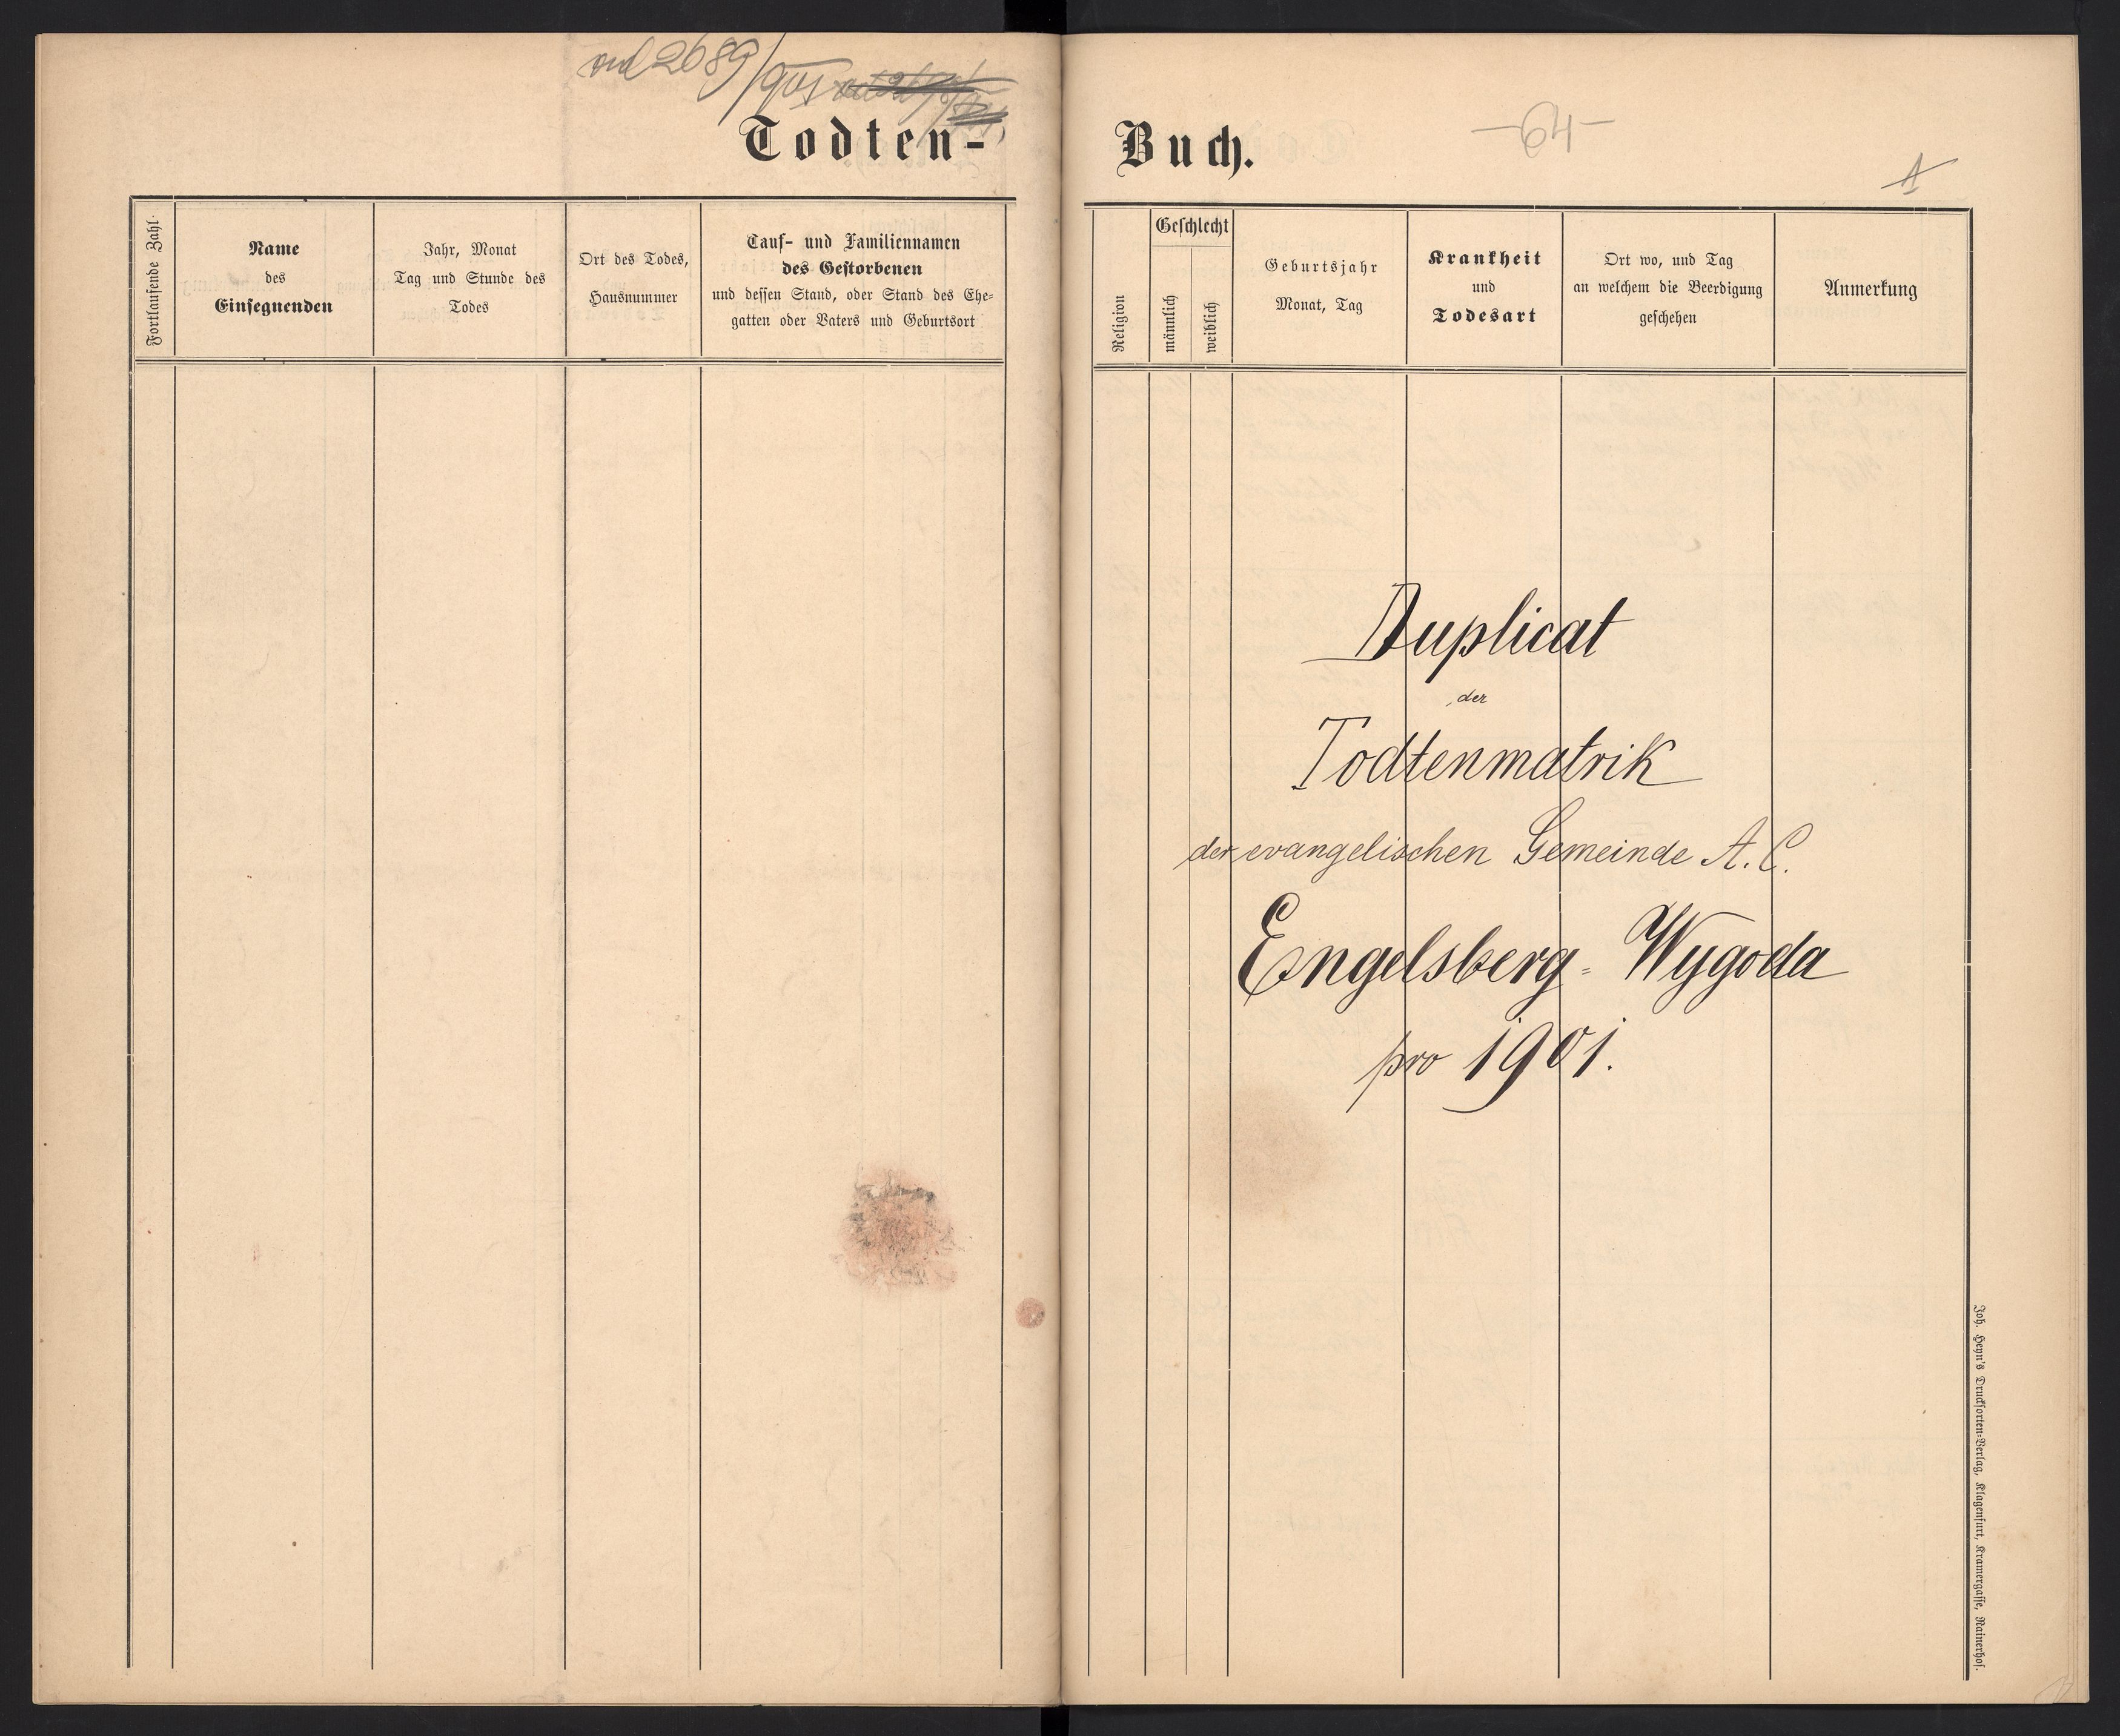 ad 2689/901
Todten-
Fortlaufende Zahl
Name
des
Einsegnenden
Jahr, Monat
Tag und Stunde des
Todes
Ort des Todes,
Hausnummer
Tauf- und Familiennamen
des Gestorbenen
und dessen Stand, oder Stand des Ehe-
gatten oder Vaters und Geburtsort
Buch.
-64-
1
Religion
Geschlecht
männlich
weiblich
Geburtsjahr
Monat, Tag
Krankheit
und
Todesart
Ort wo, und Tag
an welchem die Beerdigung
geschehen
Anmerkung
Duplicat
der
Todtenmatrik
der evangelischen Gemeinde A. C.
Engelsberg-Wygoda
pro 1901.
Joh. Heyn's Drucksorten-Verlag, Klagenfurt, Kramergasse, Rainerhof.